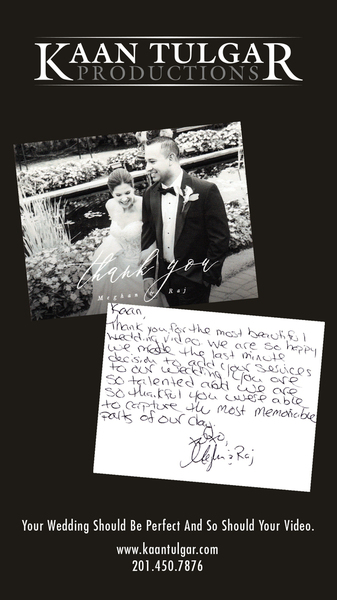 KAAN TULGAR
PRODUCTIONS
thank you
Meghan & Raj
Kaan,
Thank you for the most beautiful
wedding video. We are so happy
we made the last minute
decision to add your services
to our wedding. You are
so talented and we are
so thankful you were able
to capture the most memorable
parts of our day.
xoxo,
Meghan & Raj
Your Wedding Should Be Perfect And So Should Your Video.
www.kaantulgar.com
201.450.7876